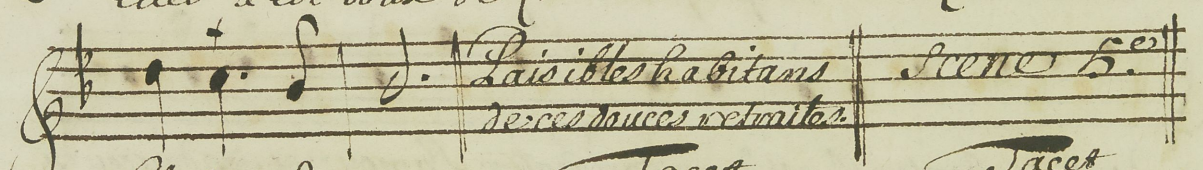 Paisibles habitans
de ces douces retraites.
Scene 5.e
Tacet
Tacet